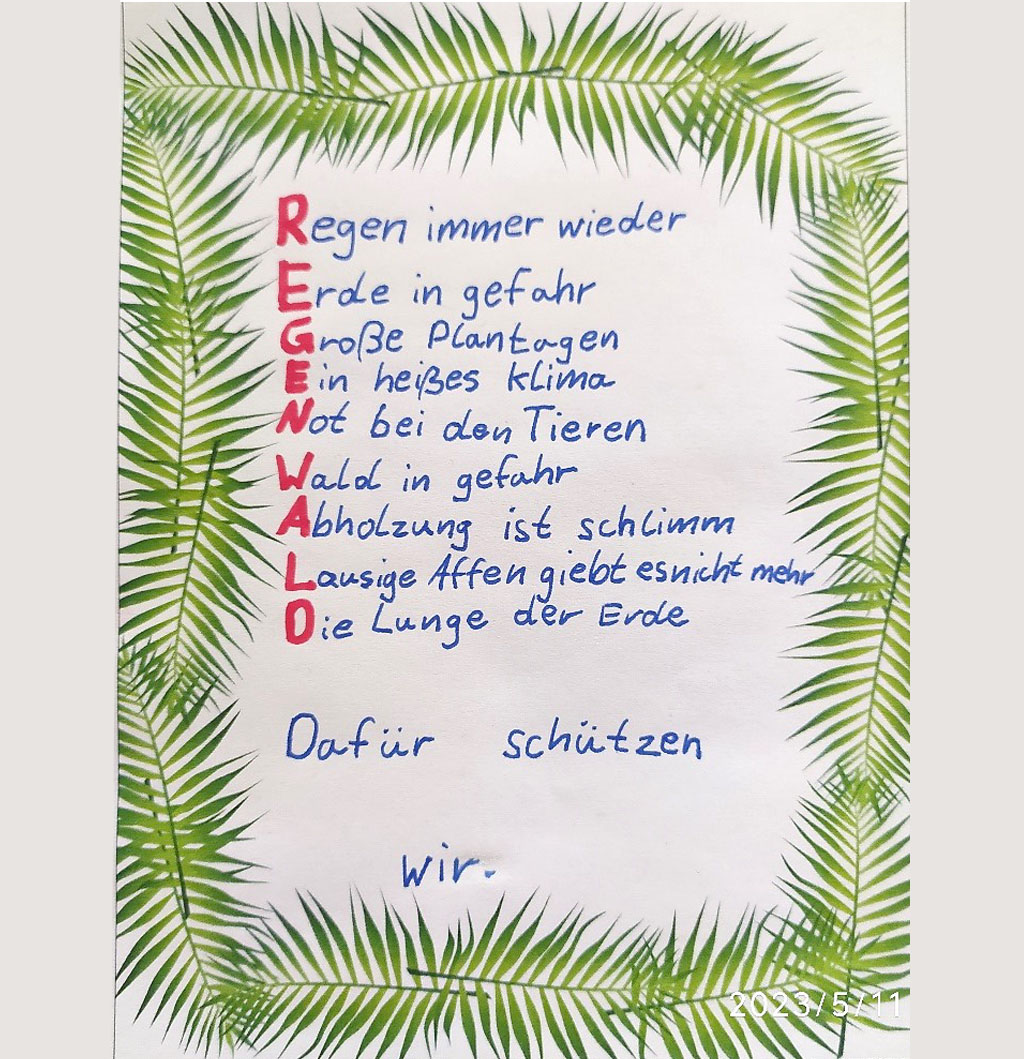 Regen immer wieder
Erde in gefahr
Große Plantagen
Ein heißes klima
Not bei den Tieren
Wald in gefahr
Abholzung ist schlimm
Lausige Affen giebt esnicht mehr
Die Lunge der Erde
Dafür schützen
wir.
2023/5/11